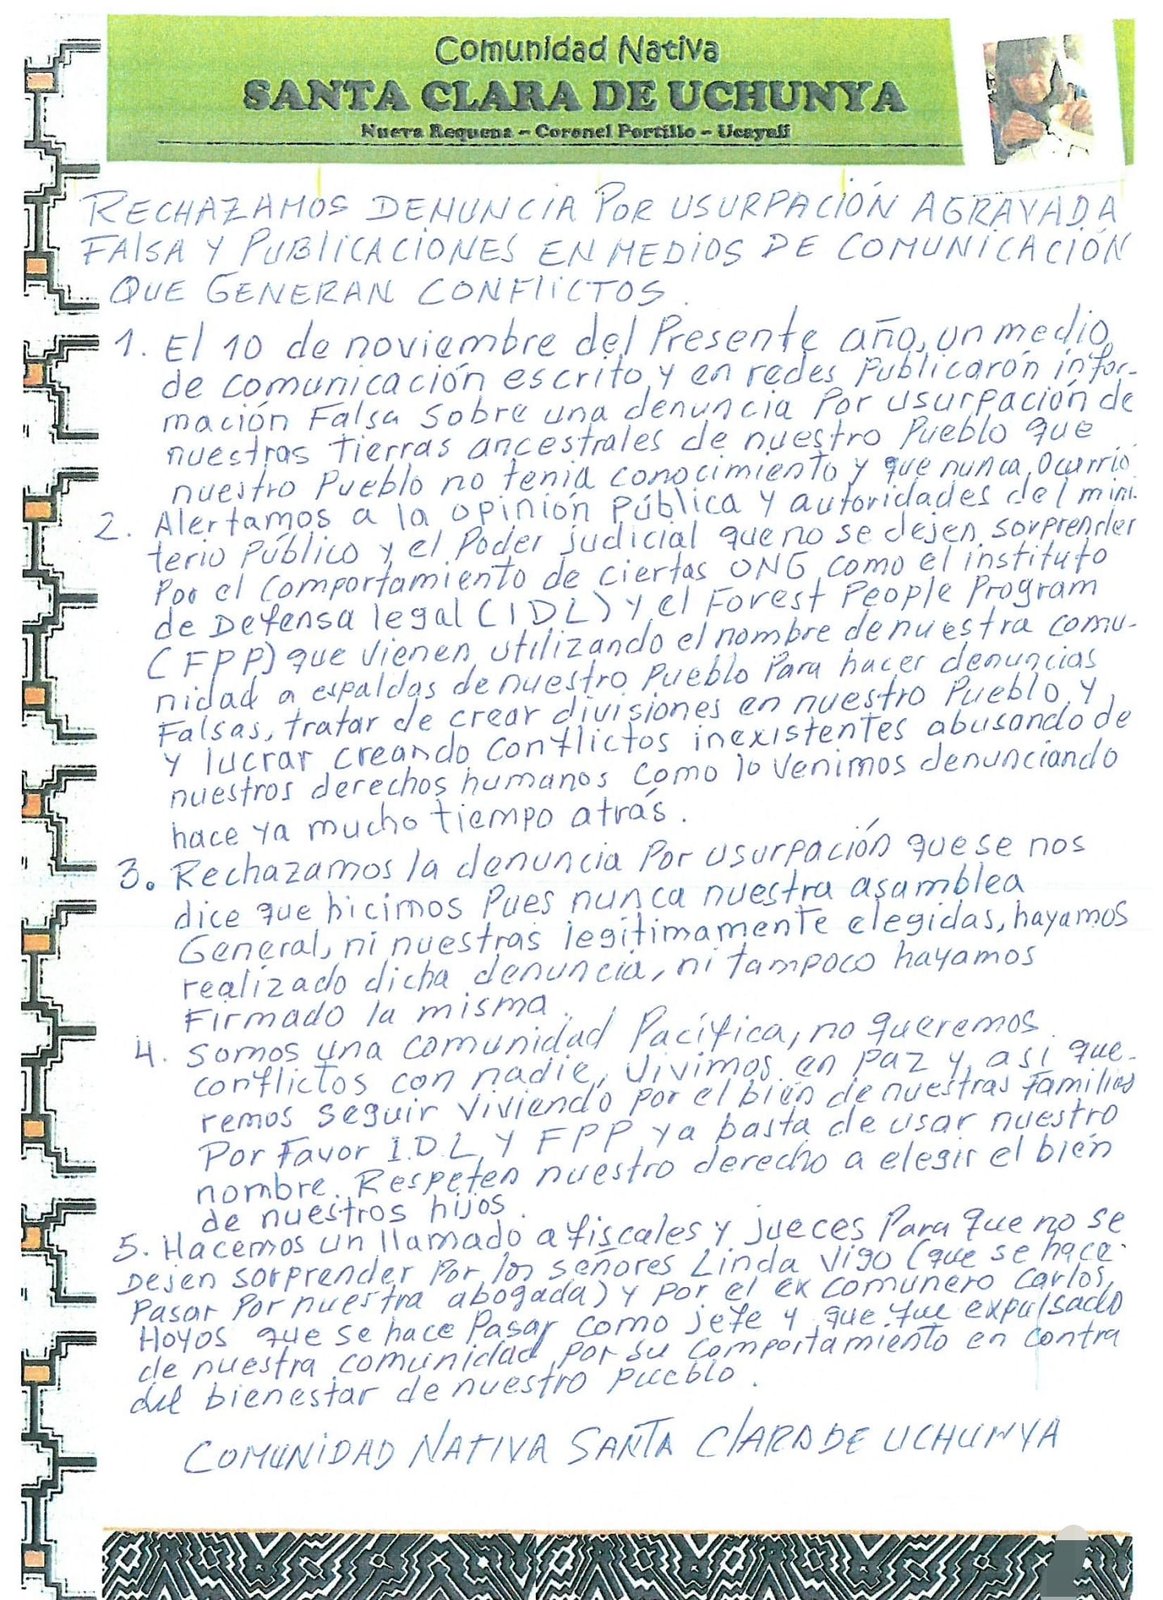 Comunidad Nativa
SANTA CLARA DE UCHUNYA
Nueva Requena – Coronel Portillo – Ucayali
RECHAZAMOS DENUNCIA POR USURPACIÓN AGRAVADA
FALSA Y PUBLICACIONES EN MEDIOS DE COMUNICACIÓN
QUE GENERAN CONFLICTOS.
1. El 10 de noviembre del Presente año, un medio
de comunicación escrito y en redes Publicarón infor-
mación Falsa Sobre una denuncia Por usurpación de
nuestras Tierras ancestrales de nuestro Pueblo que
nuestro Pueblo no tenia conocimiento y que nunca Ocurrio.
2. Alertamos a la opinión Pública y autoridades del mini-
terio Público y el Poder judicial que no se dejen sorprender
Por el comportamiento de ciertas ONG como el instituto
de Defensa legal (IDL) y el Forest People Program
(FPP) que vienen utilizando el nombre de nuestra comu-
nidad a espaldas de nuestro Pueblo Para hacer denuncias
Falsas, tratar de crear divisiones en nuestro Pueblo y
y lucrar creando conflictos inexistentes abusando de
nuestros derechos humanos como lo venimos denunciando
hace ya mucho tiempo atrás.
3. Rechazamos la denuncia Por usurpación que se nos
dice que hicimos Pues nunca nuestra asamblea
General, ni nuestras legitimamente elegidas, hayamos
realizado dicha denuncia, ni tampoco hayamos
Firmado la misma.
4. Somos una comunidad Pacífica, no queremos
conflictos con nadie, vivimos en paz y asi que-
remos seguir viviendo por el bien de nuestras familias
Por Favor I.D.L y FPP ya basta de usar nuestro
nombre. Respeten nuestro derecho a elegir el bien
de nuestros hijos.
5. Hacemos un llamado a fiscales y jueces Para que no se
Dejen sorprender Por los señores Linda Vigo (que se hace
Pasar Por nuestra abogada) y por el ex comunero Carlos
Hoyos que se hace Pasar como jefe y que fue expulsado
de nuestra comunidad por su comportamiento en contra
del bienestar de nuestro pueblo.
COMUNIDAD NATIVA SANTA CLARA DE UCHUNYA